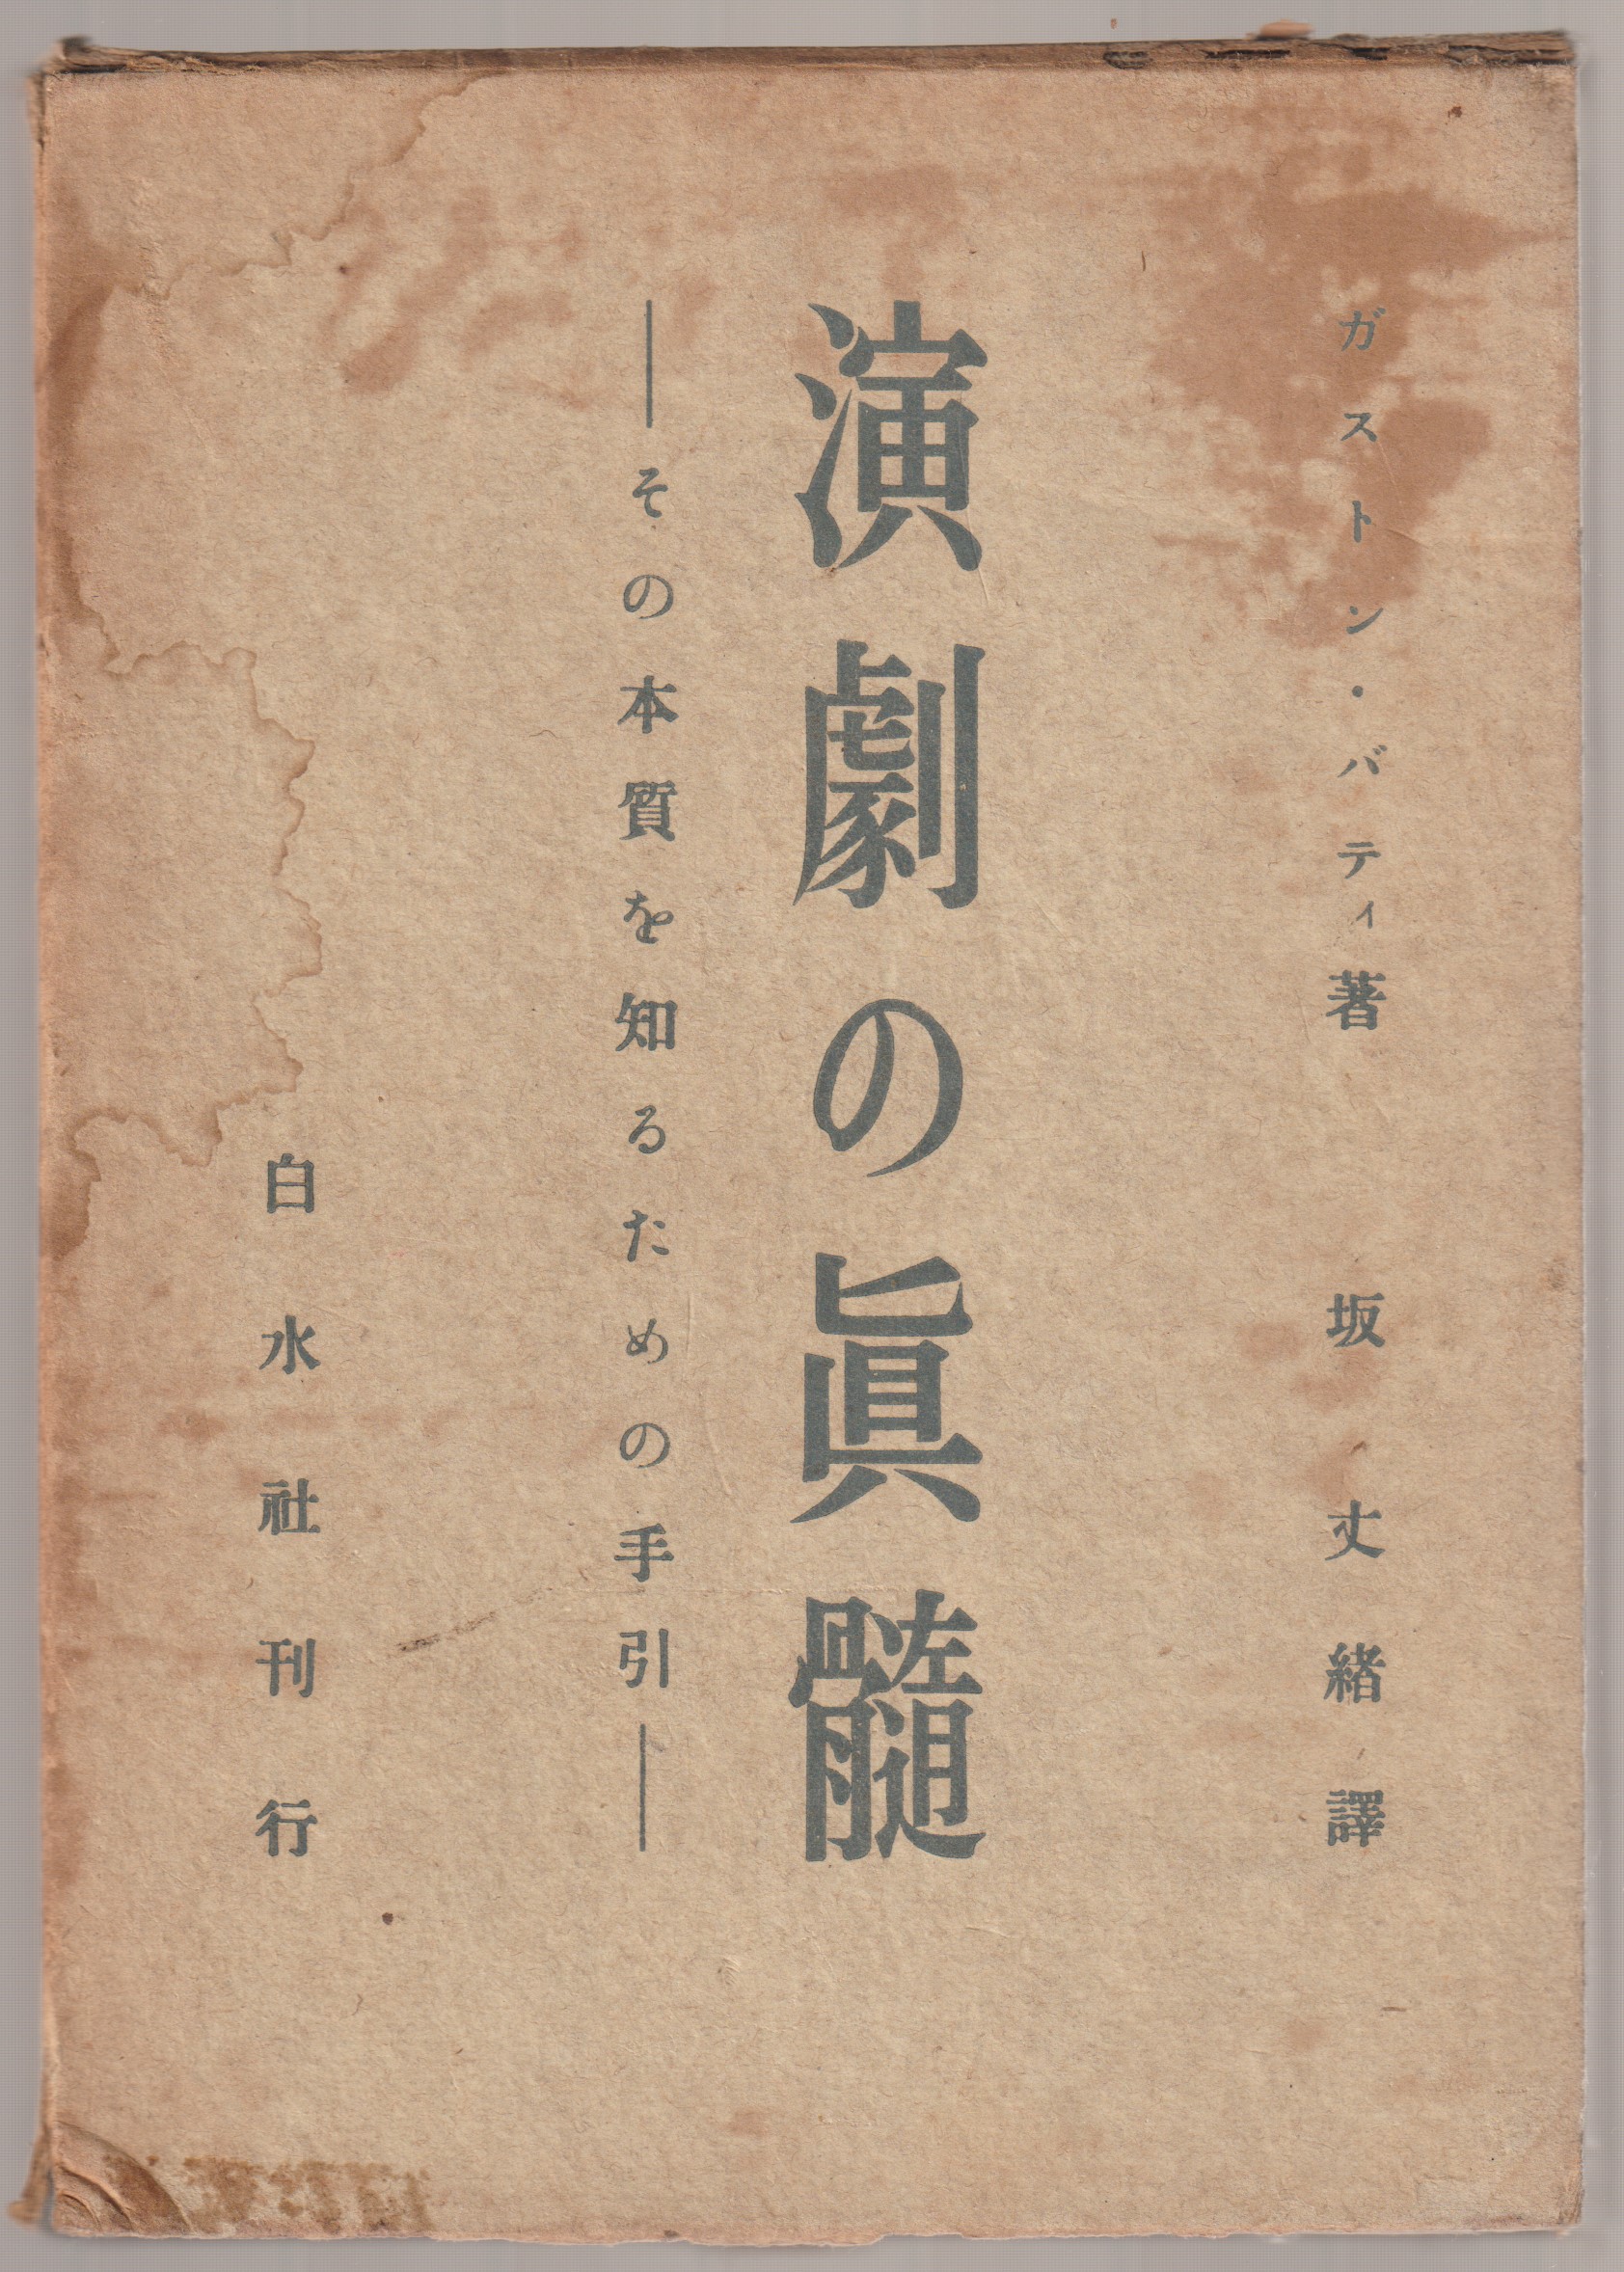 ガストン・バティ著 坂丈緒譯
演劇の眞髓
――その本質を知るための手引――
白水社刊行